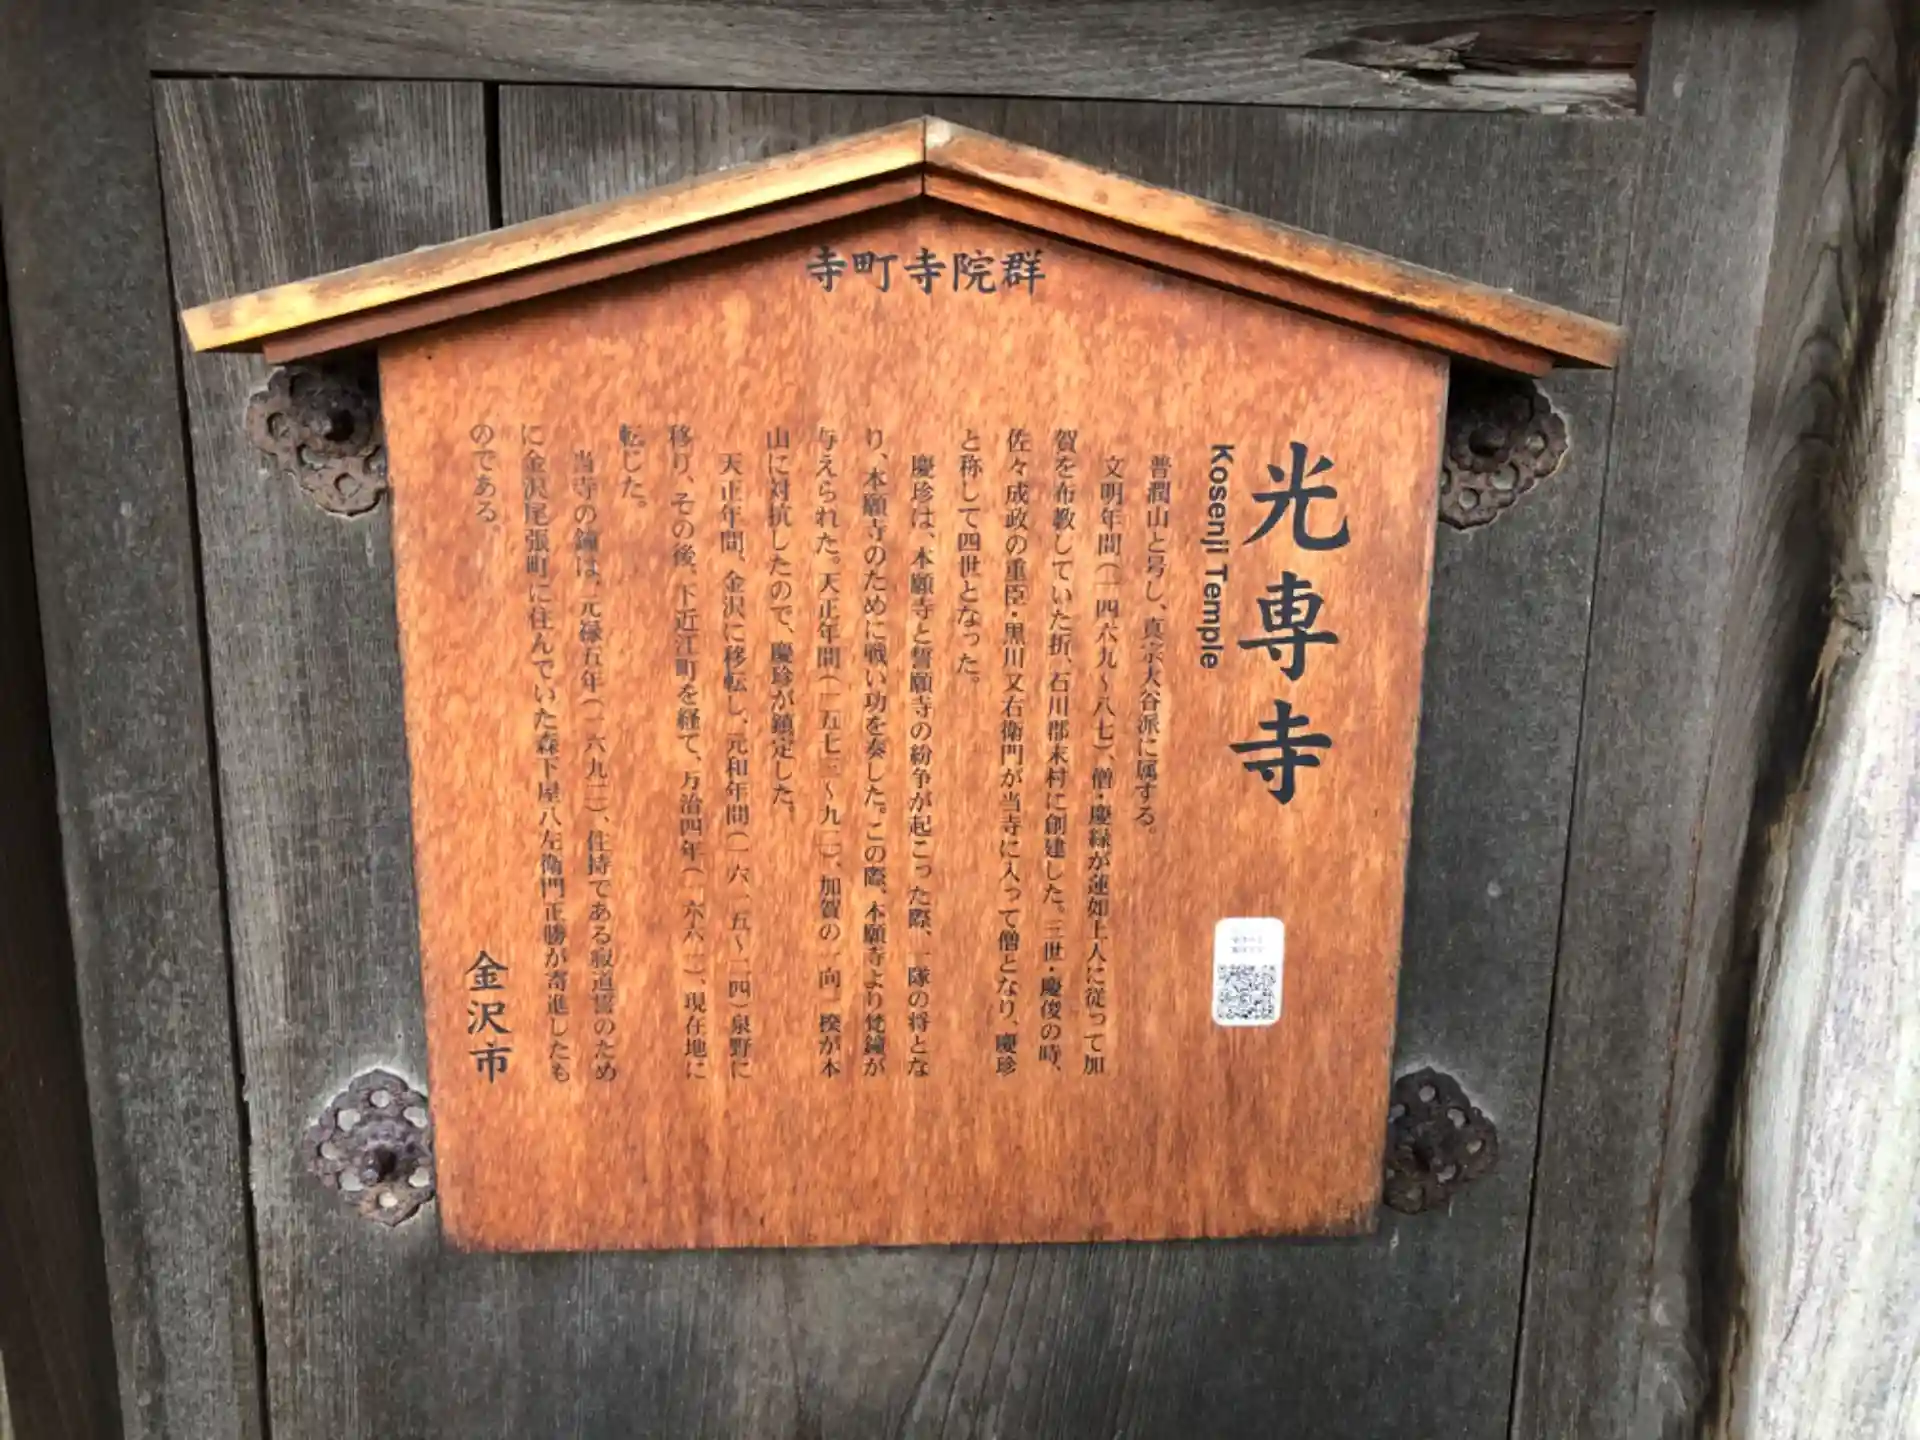 寺町寺院群
光専寺
Kosenji Temple
普潤山と号し、真宗大谷派に属する。
文明年間(一四六九〜八七)、僧・慶縁が蓮如上人に従って加
賀を布教していた折、石川郡末村に創建した。三世・慶俊の時、
佐々成政の重臣・黒川又右衛門が当寺に入って僧となり、慶珍
と称して四世となった。
慶珍は、本願寺と誓願寺の紛争が起こった際、一隊の将とな
り、本願寺のために戦い功を奏した。この際、本願寺より梵鐘が
与えられた。天正年間(一五七三〜九二)、加賀の一向一揆が本
山に対抗したので、慶珍が鎮定した。
天正年間、金沢に移転し、元和年間(一六一五〜二四)泉野に
移り、その後、下近江町を経て、万治四年(一六六一)、現在地に
転じた。
当寺の鐘は、元禄五年(一六九二)、住持である寂道誓のため
に金沢尾張町に住んでいた森下屋八左衛門正勝が寄進したも
のである。
金沢市